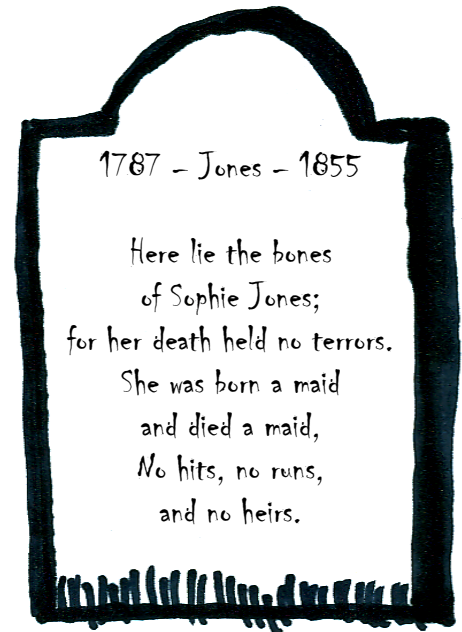 1787 – Jones – 1855
Here lie the bones
of Sophie Jones;
for her death held no terrors.
She was born a maid
and died a maid,
No hits, no runs,
and no heirs.